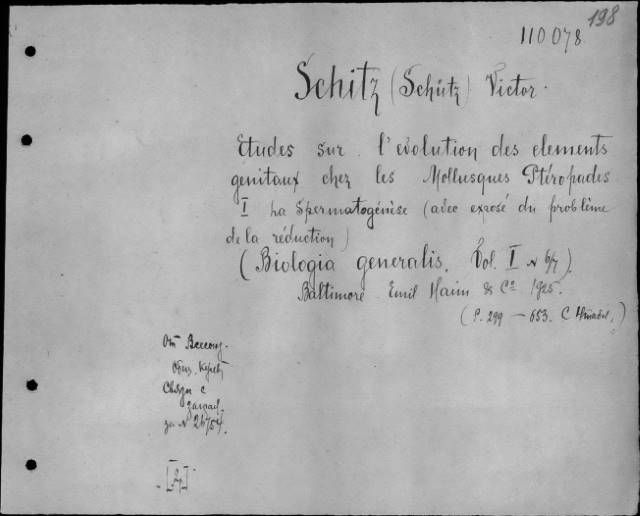 198
110078.
Schitz (Schütz) Victor.
Etudes sur l'evolution des elements
genitaux chez les Mollusques Ptéropades
I La Spermatogénèse (avec exposé du problème
de la réduction)
(Biologia generalis. Vol. I № 6/7).
Baltimore. Emil Haim & Co 1925.
(P. 299 — 653. С
От Всесоюз.
Общ. Культ.
Связи с
заграл.
за №